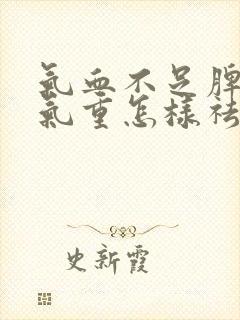 氣血不足脾
氣重怎樣祛
史新霞